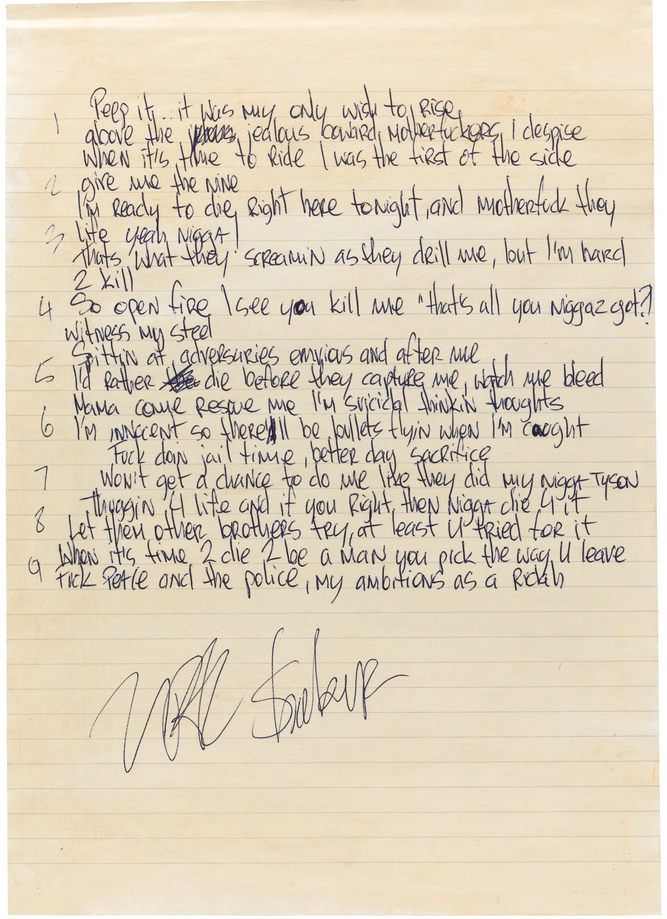 1 Peep it... it was my only wish to rise
above the jealous coward Motherfuckers I despise
When it's time to ride I was the first of the side
2 give me the nine
I'm ready to die Right here tonight, and Motherfuck they
3 life yeah Nigga!
Thats what they screamin as they drill me, but I'm hard
2 kill
4 So open fire I see you kill me "that's all you Niggaz got?
Witness my steel
Spittin at adversaries envious and after me
5 I'd rather die before they capture me, watch me bleed
Mama come Rescue me I'm suicidal thinkin thoughts
6 I'm innocent so there'll be bullets flyin when I'm caught
Fuck doin jail time, better day sacrifice
7 Won't get a chance to do me like they did my nigga Tyson
Thuggin 4 life and if you Right, then Nigga die 4 it
8 Let them other brothers try, at least U tried for it
When it's time 2 die 2 be a man you pick the way U leave
9 Fuck Peace and the police, my ambitions as a Ridah